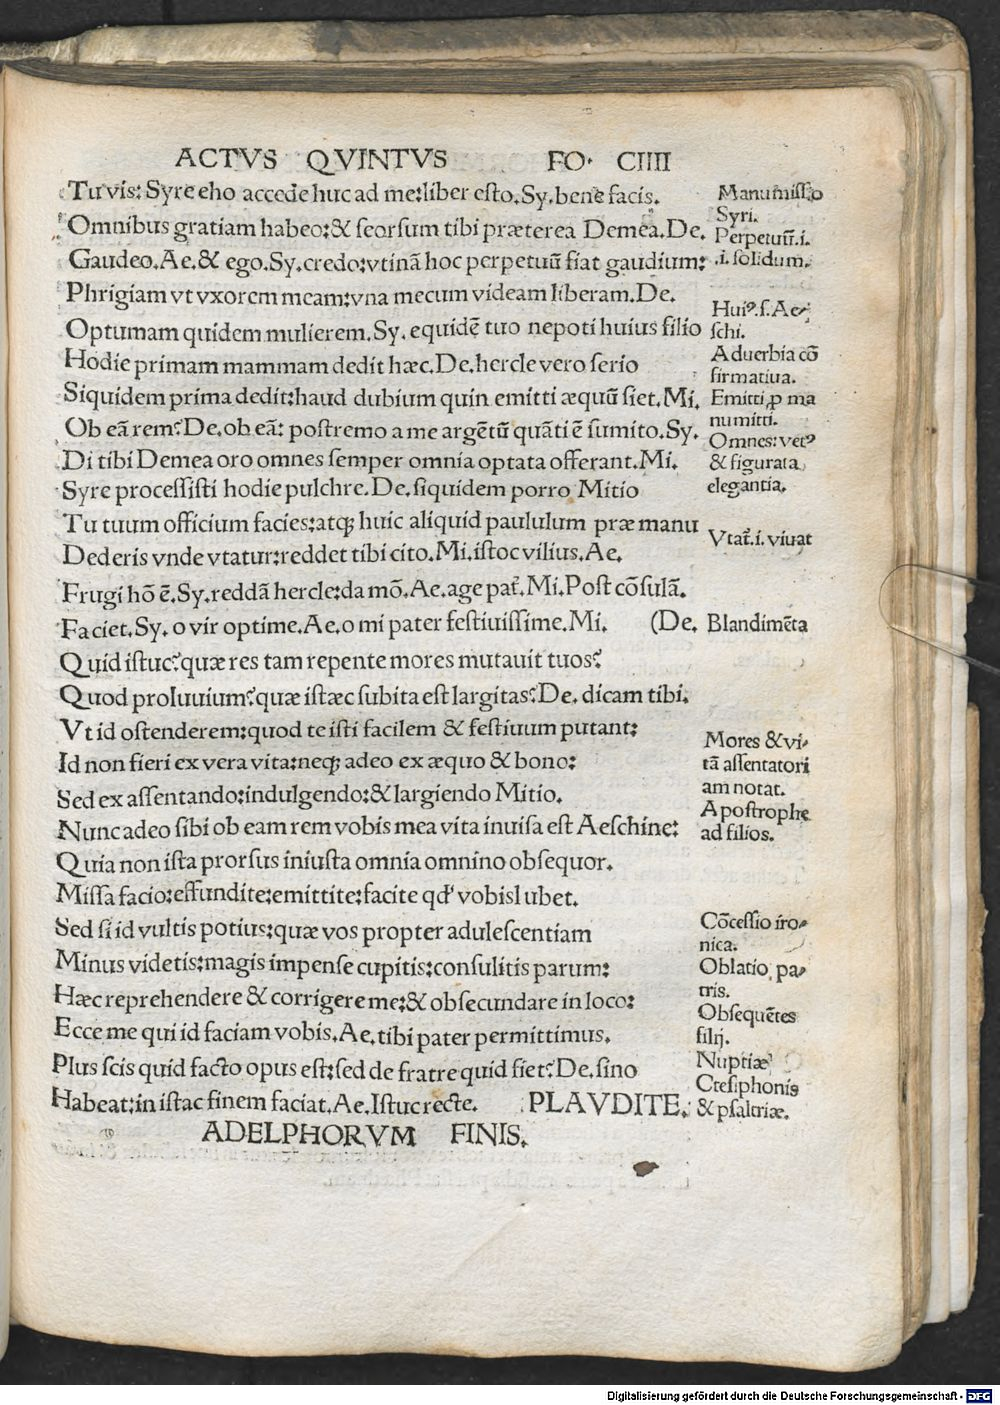 ACTVS QVINTVS FO. CIIII
Tu vis: Syre eho accede huc ad me:liber esto. Sy. bene facis.
Omnibus gratiam habeo:& seorsum tibi præterea Demea. De.
Gaudeo. Ae. & ego. Sy. credo: vtinā hoc perpetuū fiat gaudium:
Phrigiam vt vxorem meam:vna mecum videam liberam. De.
Optumam quidem mulierem. Sy. equidē tuo nepoti huius filio
Hodie primam mammam dedit hæc. De. hercle vero serio
Siquidem prima dedit:haud dubium quin emitti æquū siet. Mi.
Ob eā rem? De. ob eā: postremo a me argētū quāti ē sumito. Sy.
Di tibi Demea oro omnes semper omnia optata offerant. Mi.
Syre processisti hodie pulchre. De. siquidem porro Mitio
Tu tuum officium facies: atq; huic aliquid paululum præ manu
Dederis vnde vtatur:reddet tibi cito. Mi. istoc vilius. Ae.
Frugi hō ē. Sy. reddā hercle:da mō. Ae. age pat̄. Mi. Post cōsulā.
Faciet. Sy. o vir optime. Ae. o mi pater festiuissime. Mi. (De.
Quid istuc? quæ res tam repente mores mutauit tuos?
Quod proluuium? quæ istæc subita est largitas? De. dicam tibi.
Vt id ostenderem:quod te isti facilem & festiuum putant:
Id non fieri ex vera vita:neq; adeo ex æquo & bono:
Sed ex assentando:indulgendo:& largiendo Mitio.
Nunc adeo sibi ob eam rem vobis mea vita inuisa est Aeschine:
Quia non ista prorsus iniusta omnia omnino obsequor.
Missa facio:effundite:emittite:facite qd' vobis lubet.
Sed si id vultis potius:quæ vos propter adulescentiam
Minus videtis:magis impense cupitis:consulitis parum:
Hæc reprehendere & corrigere me:& obsecundare in loco:
Ecce me qui id faciam vobis. Ae. tibi pater permittimus.
Plus scis quid facto opus est:sed de fratre quid fiet? De. sino
Habeat:in istac finem faciat. Ae. Istuc recte. PLAVDITE.
ADELPHORVM FINIS.
Manumissio
Syri.
Perpetuū.i.
.i. solidum.
Huiꝰ.s. Ae-
schi.
Aduerbia cō
firmatiua.
Emitti ꝑ ma
numitti.
Omnes: vetꝰ
& figurata
elegantia.
Vtat̄.i. viuat
Blandimēta
Mores & vi-
tā assentatori
am notat.
Apostrophe
ad filios.
Cōcessio iro-
nica.
Oblatio pa-
tris.
Obsequētes
filij.
Nuptiæ
Ctesiphonis
& psaltriæ.
Digitalisierung gefördert durch die Deutsche Forschungsgemeinschaft - DFG